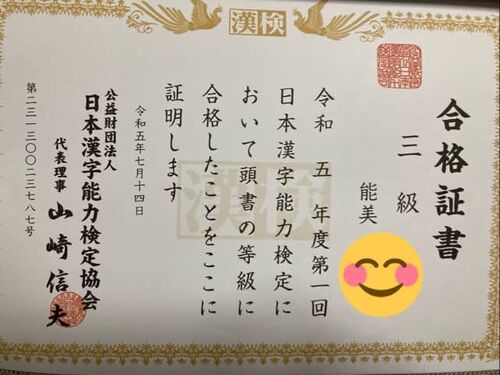 漢検
合格証書
三級
能美
令和五年度第一回
日本漢字能力検定に
おいて頭書の等級に
合格したことをここに
証明します
令和五年七月十四日
公益財団法人
日本漢字能力検定協会
代表理事 山崎信夫
第二三一三〇〇二三七八七号
漢検